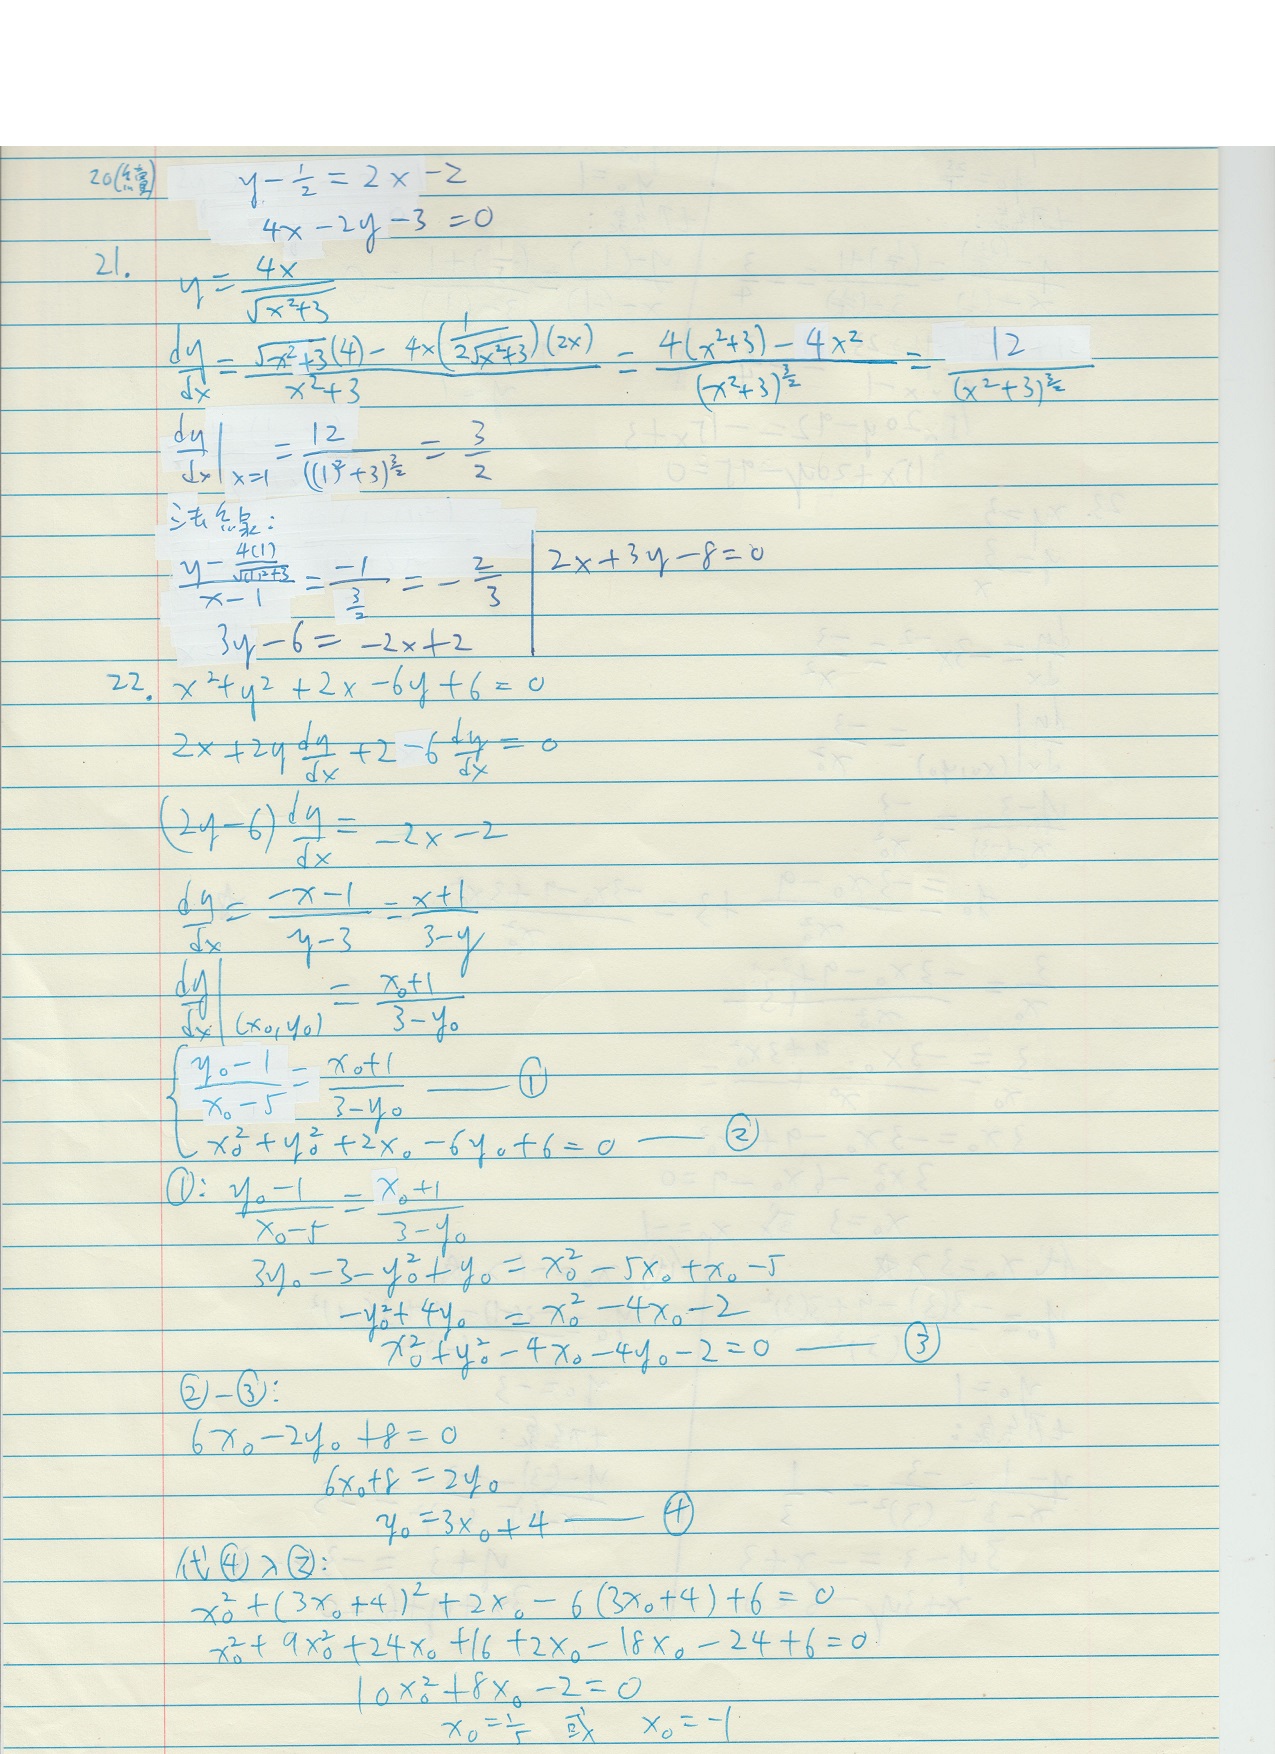 20(續) y - 1/2 = 2x - 2
4x - 2y - 3 = 0
21. y = 4x/√(x²+3)
dy/dx = (√(x²+3)(4) - 4x(1/(2√(x²+3)))(2x))/(x²+3) = (4(x²+3) - 4x²)/(x²+3)^(3/2) = 12/(x²+3)^(3/2)
dy/dx|x=1 = 12/((1)²+3)^(3/2) = 3/2
法線:
(y - 4(1)/√((1)²+3))/(x-1) = -1/(3/2) = -2/3
3y - 6 = -2x + 2
2x + 3y - 8 = 0
22. x² + y² + 2x - 6y + 6 = 0
2x + 2y dy/dx + 2 - 6 dy/dx = 0
(2y - 6) dy/dx = -2x - 2
dy/dx = (-x-1)/(y-3) = (x+1)/(3-y)
dy/dx|(x₀,y₀) = (x₀+1)/(3-y₀)
{ (y₀-1)/(x₀-5) = (x₀+1)/(3-y₀) —— ①
x₀² + y₀² + 2x₀ - 6y₀ + 6 = 0 —— ②
①: (y₀-1)/(x₀-5) = (x₀+1)/(3-y₀)
3y₀ - 3 - y₀² + y₀ = x₀² - 5x₀ + x₀ - 5
-y₀² + 4y₀ = x₀² - 4x₀ - 2
x₀² + y₀² - 4x₀ - 4y₀ - 2 = 0 —— ③
② - ③:
6x₀ - 2y₀ + 8 = 0
6x₀ + 8 = 2y₀
y₀ = 3x₀ + 4 —— ④
代④入②:
x₀² + (3x₀+4)² + 2x₀ - 6(3x₀+4) + 6 = 0
x₀² + 9x₀² + 24x₀ + 16 + 2x₀ - 18x₀ - 24 + 6 = 0
10x₀² + 8x₀ - 2 = 0
x₀ = 1/5 或 x₀ = -1